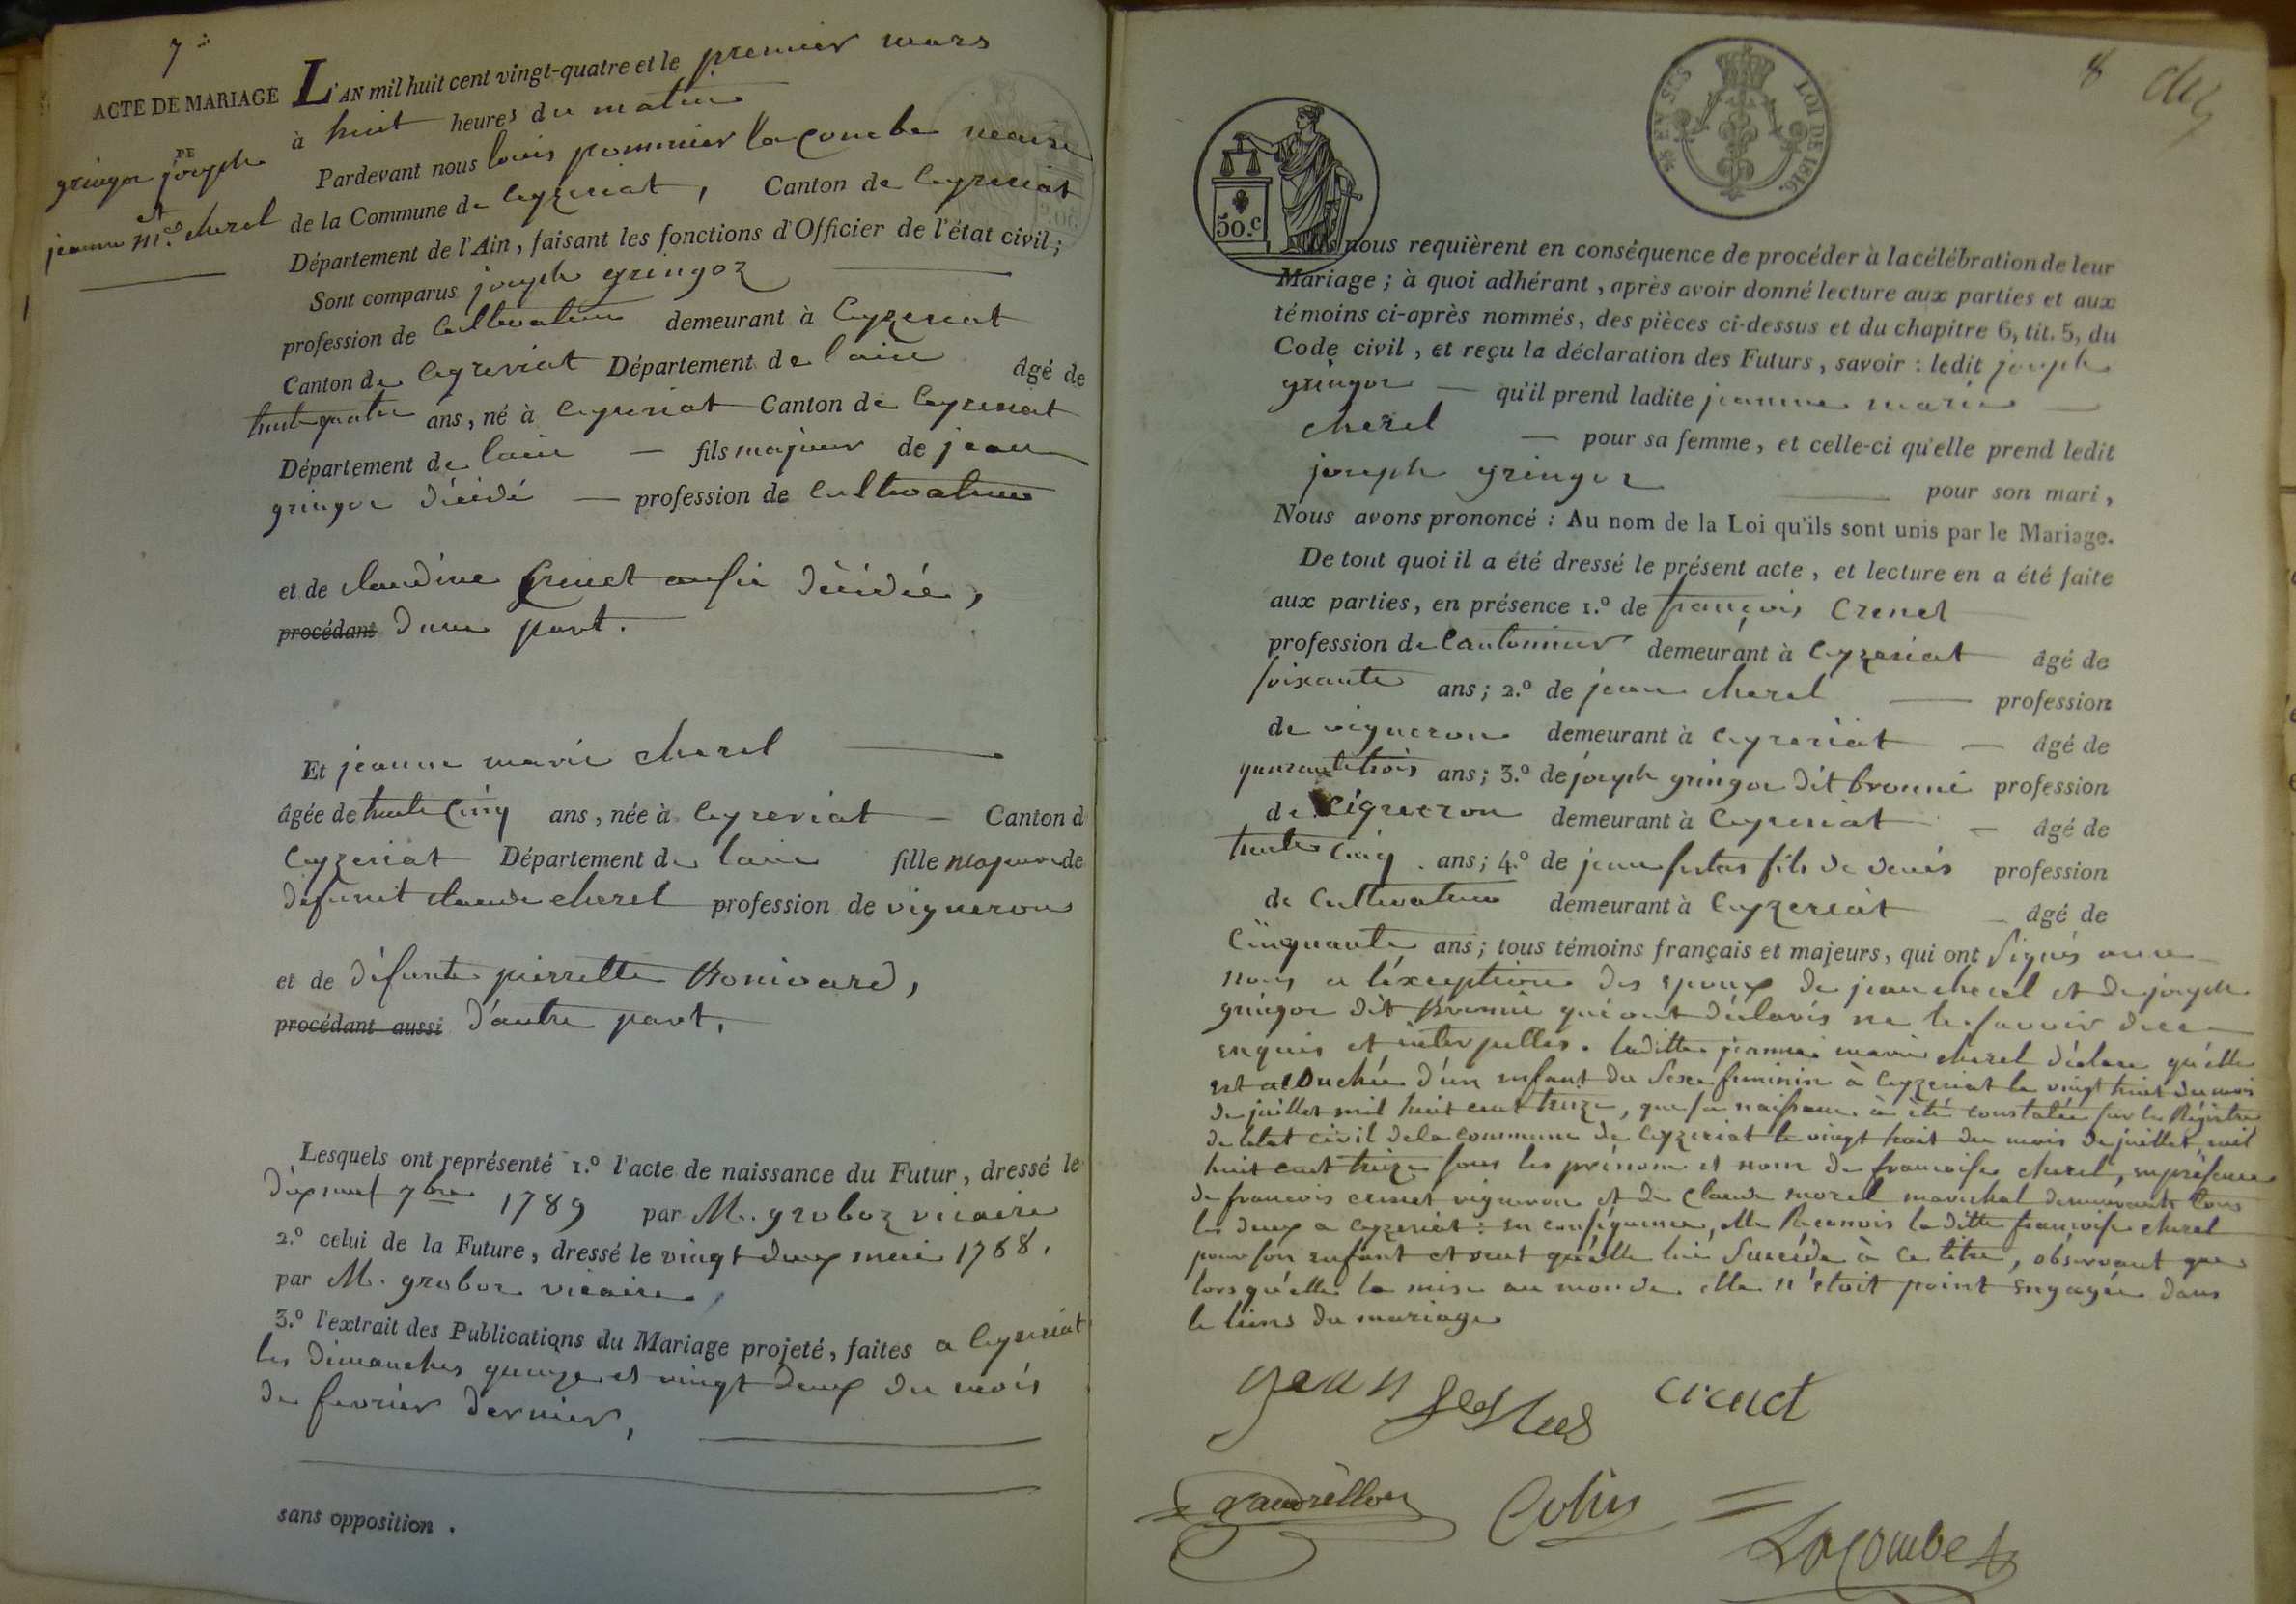 7
L'AN mil huit cent vingt-quatre et le premier mars
ACTE DE MARIAGE
à huit heures du matin
DE
gringoz joseph
Pardevant nous louis pommier lacombe maire
et
jeanne m.e cherel
de la Commune de Ceyzeriat, Canton de Ceyzeriat
Département de l'Ain, faisant les fonctions d'Officier de l'état civil;
Sont comparus joseph gringoz
profession de Cultivateur demeurant à Ceyzeriat
Canton de Ceyzeriat Département de lain âgé de
trente quatre ans, né à Ceyzeriat Canton de Ceyzeriat
Département de lain — fils majeur de jean
gringoz décédé — profession de Cultivateur
et de claudine Crenet aussi décédée,
procédant dune part.
Et jeanne marie cherel
âgée de trente Cinq ans, née à Ceyzeriat — Canton d
Ceyzeriat Département de lain fille majeure de
défunt claude cherel profession de vigneron
et de défunte pierrette Bonivard,
procédant aussi d'autre part,
Lesquels ont représenté 1.º l'acte de naissance du Futur, dressé le
dix neuf 7bre 1789 par M. groboz vicaire
2.º celui de la Future, dressé le vingt deux mai 1768.
par M. groboz vicaire
3.º l'extrait des Publications du Mariage projeté, faites a Ceyzeriat
les dimanches quinze et vingt deux du mois
de fevrier dernier,
sans opposition.
8
LOI DE 1816.
50.c
Ils nous requièrent en conséquence de procéder à la célébration de leur
Mariage; à quoi adhérant, après avoir donné lecture aux parties et aux
témoins ci-après nommés, des pièces ci-dessus et du chapitre 6, tit. 5, du
Code civil, et reçu la déclaration des Futurs, savoir: ledit joseph
gringoz — qu'il prend ladite jeanne marie —
cherel — pour sa femme, et celle-ci qu'elle prend ledit
joseph gringoz pour son mari,
Nous avons prononcé: Au nom de la Loi qu'ils sont unis par le Mariage.
De tout quoi il a été dressé le présent acte, et lecture en a été faite
aux parties, en présence 1.º de françois Crenet
profession de Cantonnier demeurant à Ceyzeriat âgé de
soixante ans; 2.º de jean cherel — profession
de vigneron demeurant à Ceyzeriat — âgé de
quarante trois ans; 3.º de joseph gringoz dit bronnie profession
de vigneron demeurant à Ceyzeriat — âgé de
trente cinq ans; 4.º de jean festas fils de denis profession
de Cultivateur demeurant à Ceyzeriat — âgé de
Cinquante ans; tous témoins français et majeurs, qui ont signés avec
nous a l'éxception des epoux de jean cherel et de joseph
gringoz dit Bronnie qui ont déclarés ne le savoir de ce
enquis et interpellés. laditte jeanne marie cherel déclare qu'elle
est accouchée d'un enfant du sexe feminin à Ceyzeriat le vingt huit du mois
de juillet mil huit cent treize, que sa naissance à été constatée sur les Régistres
de letat civil de la commune de Ceyzeriat le vingt huit du mois de juillet mil
huit cent treize sous les prénom et nom de francoise cherel, en présence
de francois crenet vigneron et de Claude morel marechal demeurants tous
les deux a Ceyzeriat: en conséquence, elle Reconnois la ditte francoise cherel
pour son enfant et veut qu'elle lui succéde à ce titre, observant que
lors qu'elle la mise au monde elle n'étoit point engagée dans
le liens du mariage
jean festas crenet
Colin
Lacombe